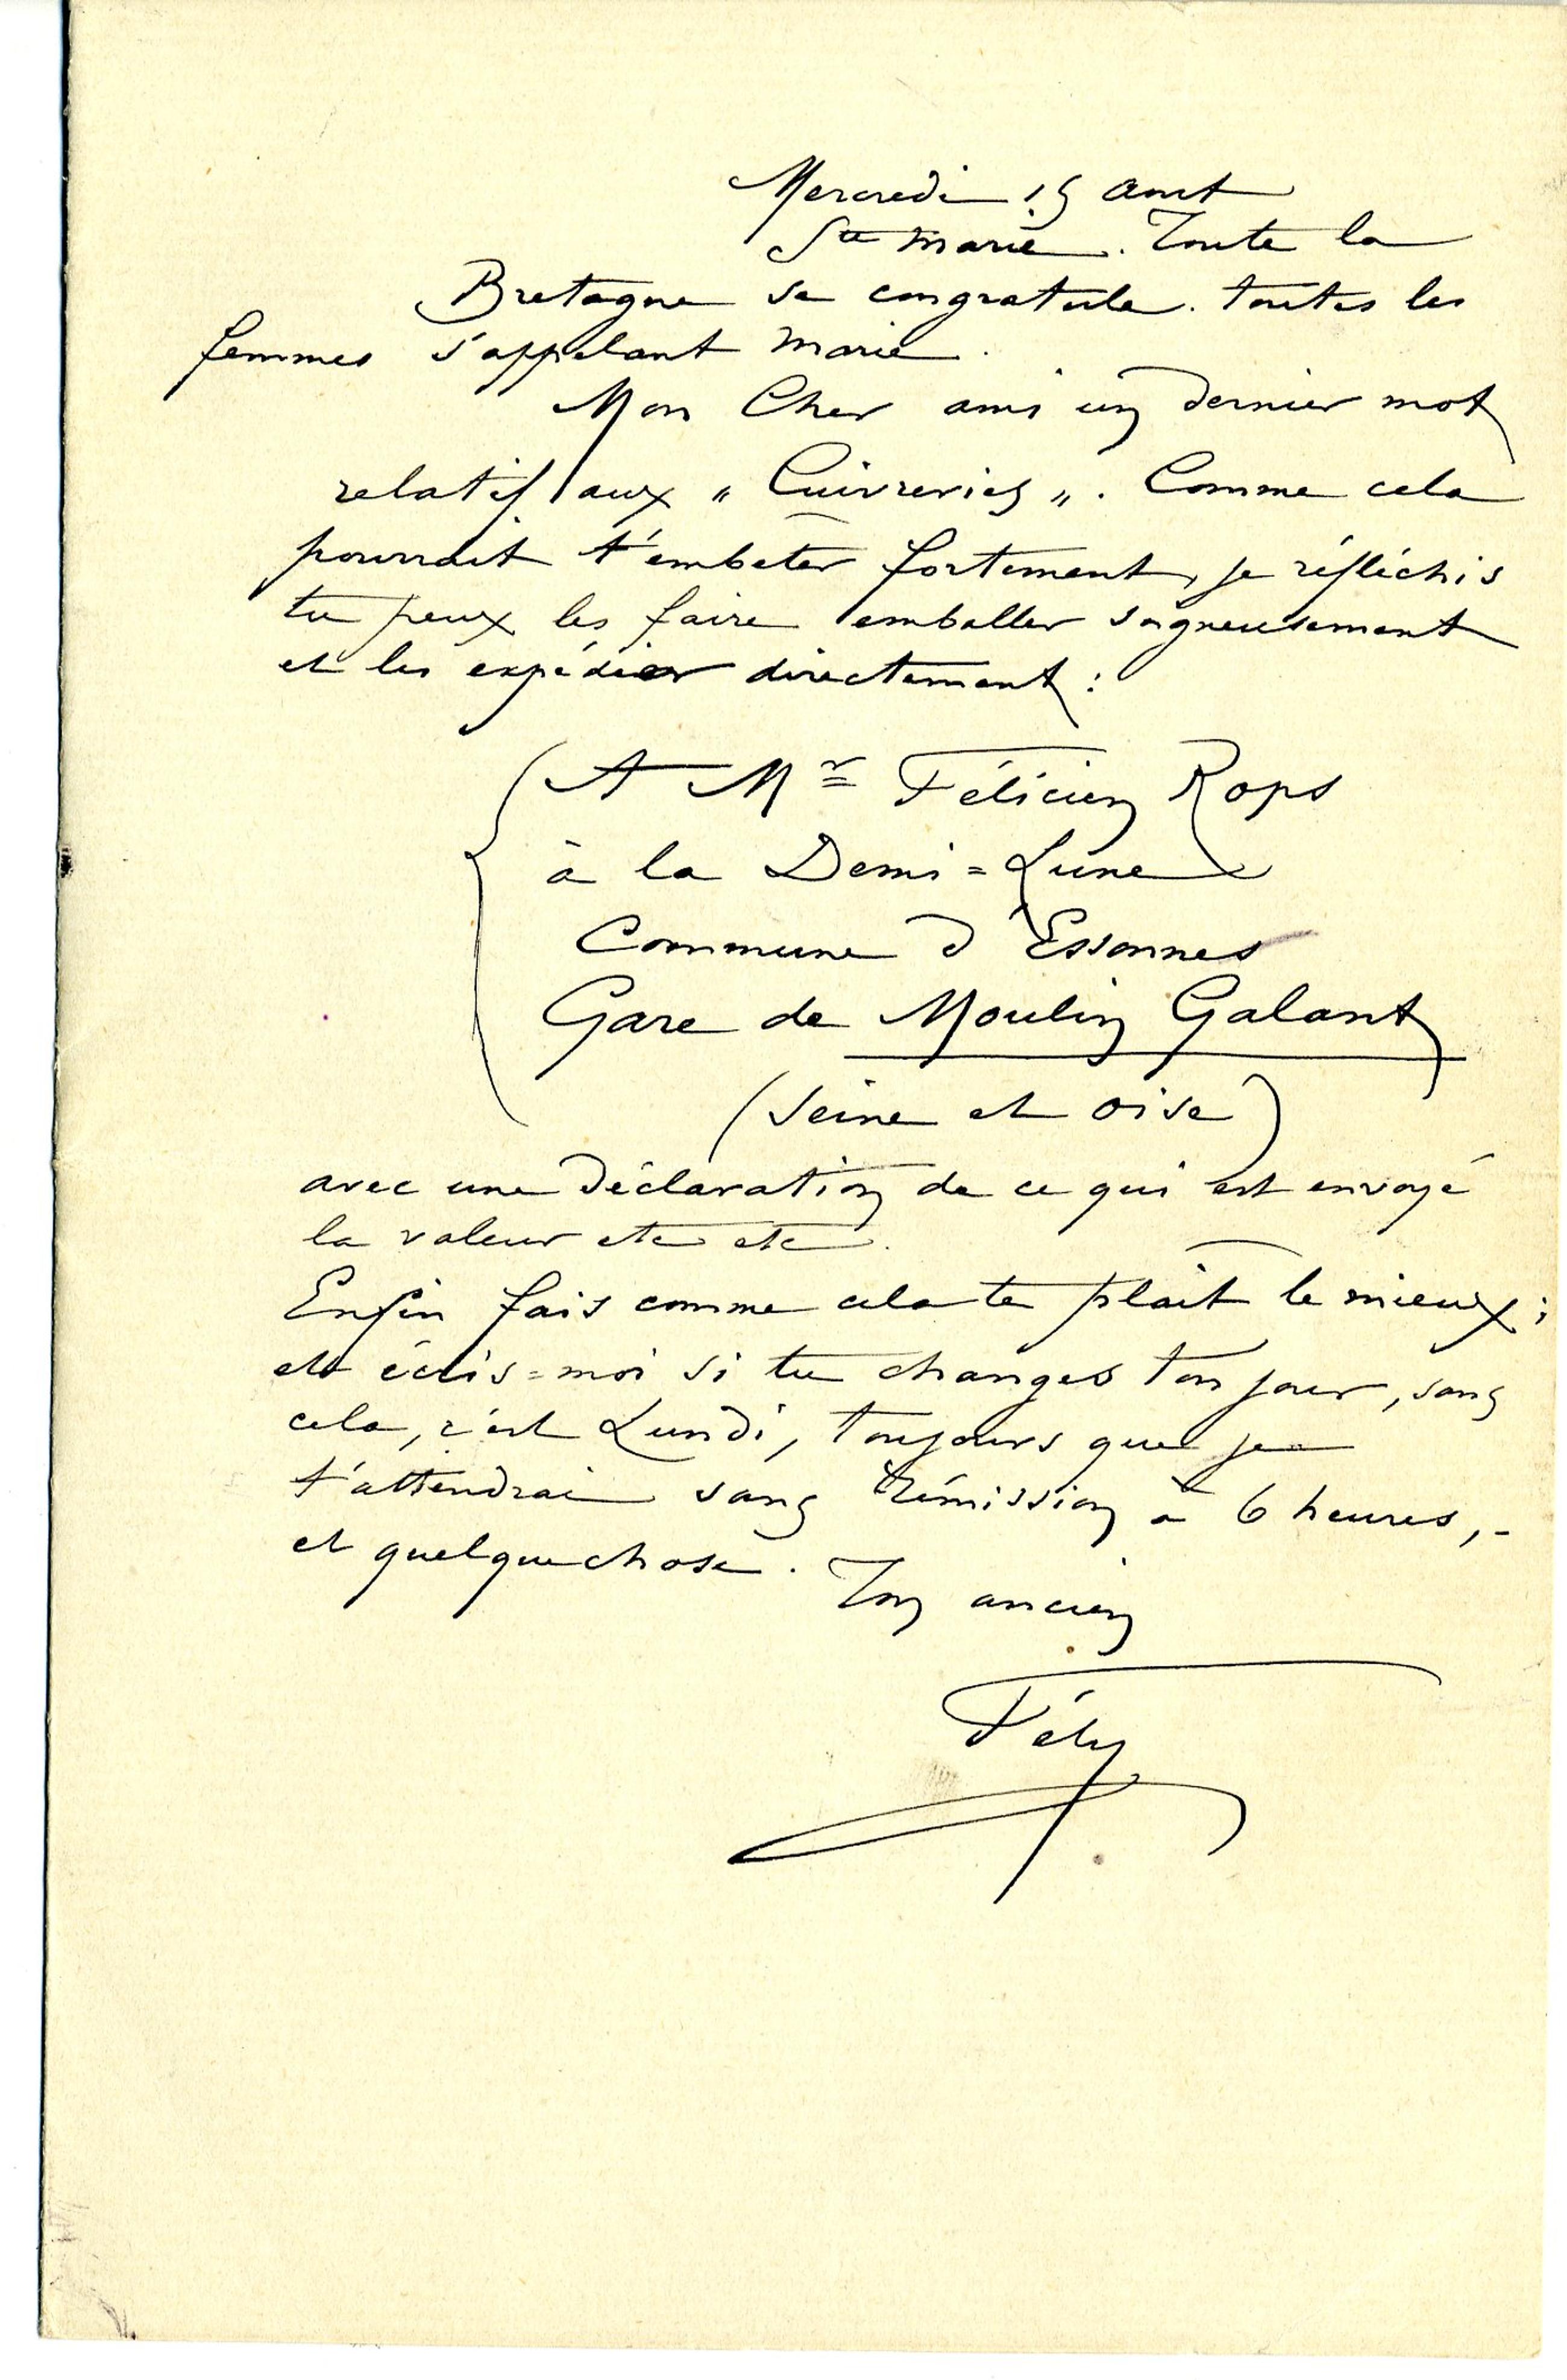 Mercredi 15 Aout
Ste Marie. Toute la
Bretagne se congratule. toutes les
femmes s'appelant Marie.
Mon Cher ami un dernier mot
relatif aux „ Cuivreries „. Comme cela
pourrait t'embeter fortement, je réfléchis
tu peux les faire emballer soigneusement
et les expédier directement :
A Mr Félicien Rops
à la Demi=Lune
Commune d'Essonnes
Gare de Moulin Galant
(Seine et Oise)
avec une déclaration de ce qui est envoyé
la valeur etc etc.
Enfin fais comme cela te plait le mieux ;
et écris=moi si tu changes ton jour, sans
cela, c'est Lundi, toujours que je
t'attendrai sans rémission à 6 heures,-
et quelque chose. Ton ancien
Fély